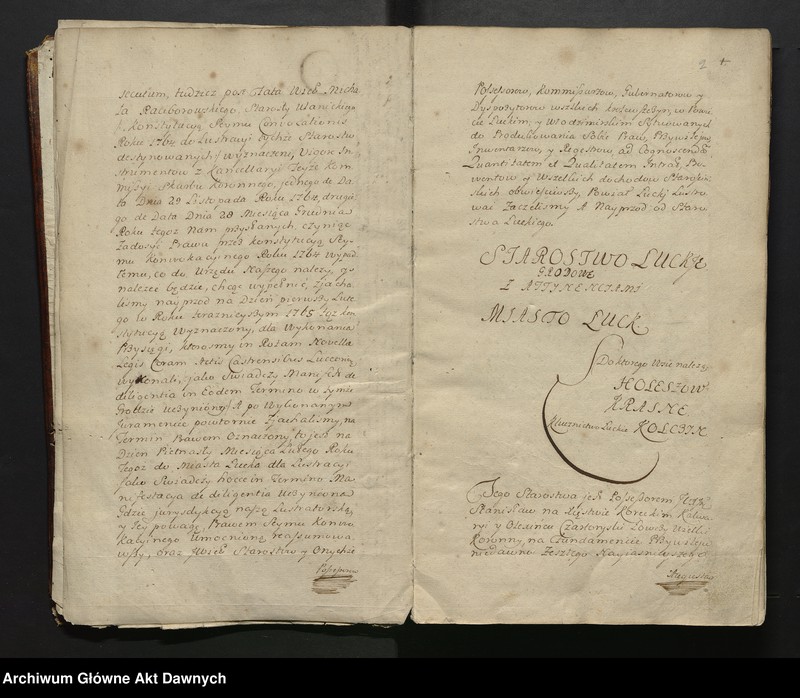 seculum, tudzież post Fata Wielb. Micha
ła Raciborowskiego, Starosty Ułanickiego
Konstytucyą Seymu Convocationis
Roku 1764 do Lustracyi tychże Starostw
destynowanych y wyznaczeni, Vigore In
strumentow z Kancellaryi teyże Kom
myssyi Skarbu Koronnego, jednego de Da
to Dnia 29 Listopada Roku 1764, drugie
go de Data Dnia 28 Miesiąca Grudnia
Roku tegoż Nam przysłanych, czyniąc
zadosyć Prawu przez Konstytucyą Sey
mu Konwokacyinego Roku 1764 wypad
łemu, co do Urzędu Naszego należy, y
należeć będzie, chcąc wypełnić, zjacha
liśmy nayprzod na Dzień pierwszy Lute
go w Roku teraznieyszym 1765 tąż Kon
stytucyą Wyznaczony, dla Wykonania
Przysięgi, ktorąśmy in Rotam Novella
Legis Coram Actis Castrensibus Luceorien
wykonali, jako Swiadczy Manifest de
diligentia in Eodem Termino w tymże
Grodzie Uczyniony. A po Wykonanym
Juramencie powtornie Zjachaliśmy, na
Termin Prawem Oznaczony, to jest na
Dzień Pietnasty Miesiąca Lutego Roku
tegoż do Miasta Łucka dla Lustracyi
jako Swiadczy hocce in Termino Ma
nifestacya de diligentia Uczyniona
Gdzie jurysdykcyą naszą Lustratorską
y Jey powagę, Prawem Seymu Konwo
kacyinego Umocnioną reassumowa
wszy, oraz Starostw y Onychże
Possessorow
2
Possessorow, Kommissarzow, Gubernatorow y
Dyspozytorow wszelkich krzesujących, w Powie
cie Łuckim, y Włodzimirskim Sytuowanych
do Produkowania Sobie Praw, Przywilejow
Inwentarzow, y Regestrow, ad Cognoscendam
Quantitatem et Qualitatem Intrat, Pro
wentow y Wszelkich dochodow Starościn
skich obwieściwszy, Powiat Łucki Lustro
wać zaczeliśmy A Nayprzod od Staro
stwa Łuckiego.
STAROSTWO ŁUCKIE
GRODOWE
Z ATTYNENCIAMI
MIASTO ŁUCK.
Do ktorego Wsie należą
HOLESZOW
KRASNE
Klucznictwo Łuckie KOLCZYN
Tego Starostwa jest Possessorem
Stanisław na Klewaniu Koreckim
y Oleksińcu Czartoryski Łowczy Wielki
Koronny, na Fundamencie Przywileju
niedawno Zeszłego Nayjasnieyszego
Augusta